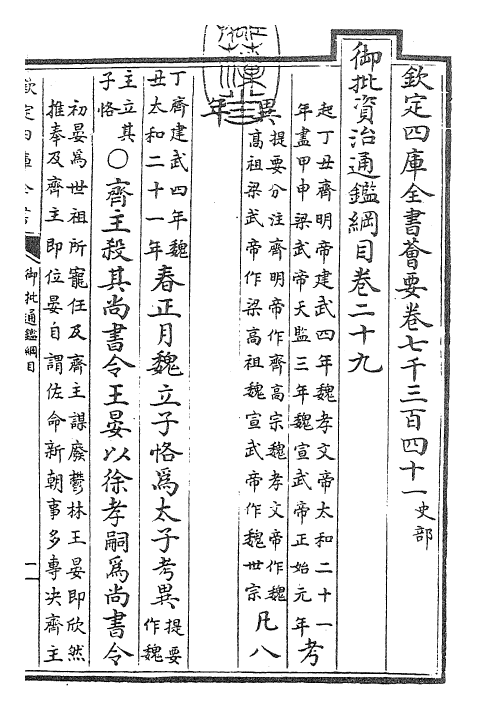 欽定四庫全書薈要卷七千三百四十一史部
御批資治通鑑綱目卷二十九
起丁丑齊明帝建武四年魏孝文帝太和二十一
年盡甲申梁武帝天監三年魏宣武帝正始元年
考
異
提要分注齊明帝作齊高宗魏孝文帝作魏
高祖梁武帝作梁高祖魏宣武帝作魏世宗
凡八
年
丁齊建武四年魏
丑太和二十一年
春正月魏立子恪爲太子考異
提要
作魏
主立其
子恪
○齊主殺其尚書令王晏以徐孝嗣爲尚書令
初晏爲世祖所寵任及齊主謀廢鬱林王晏即欣然
推奉及齊主即位晏自謂佐命新朝事多專决齊主
欽定四庫全書
御批通鑑綱目